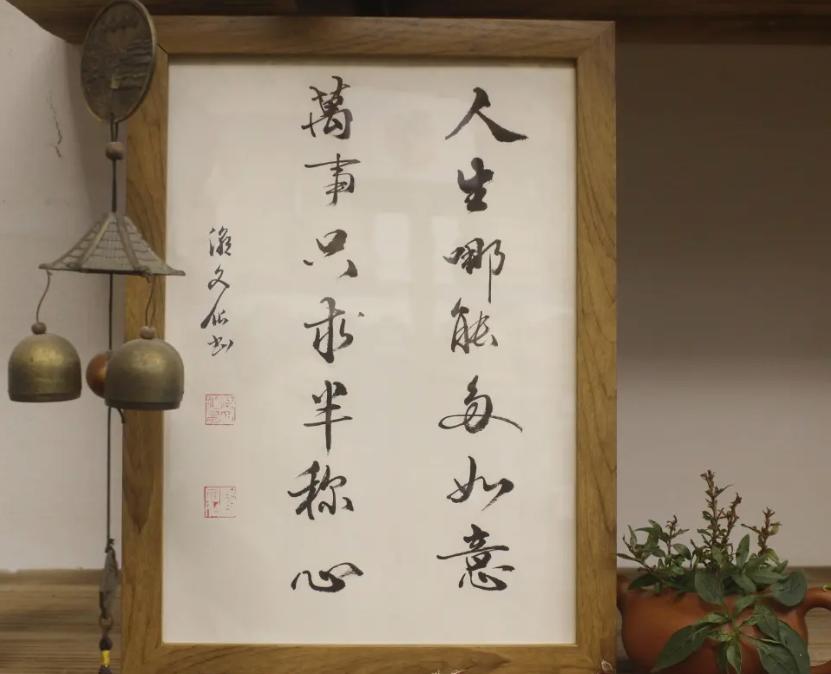 人生哪能多如意
萬事只求半称心
文书